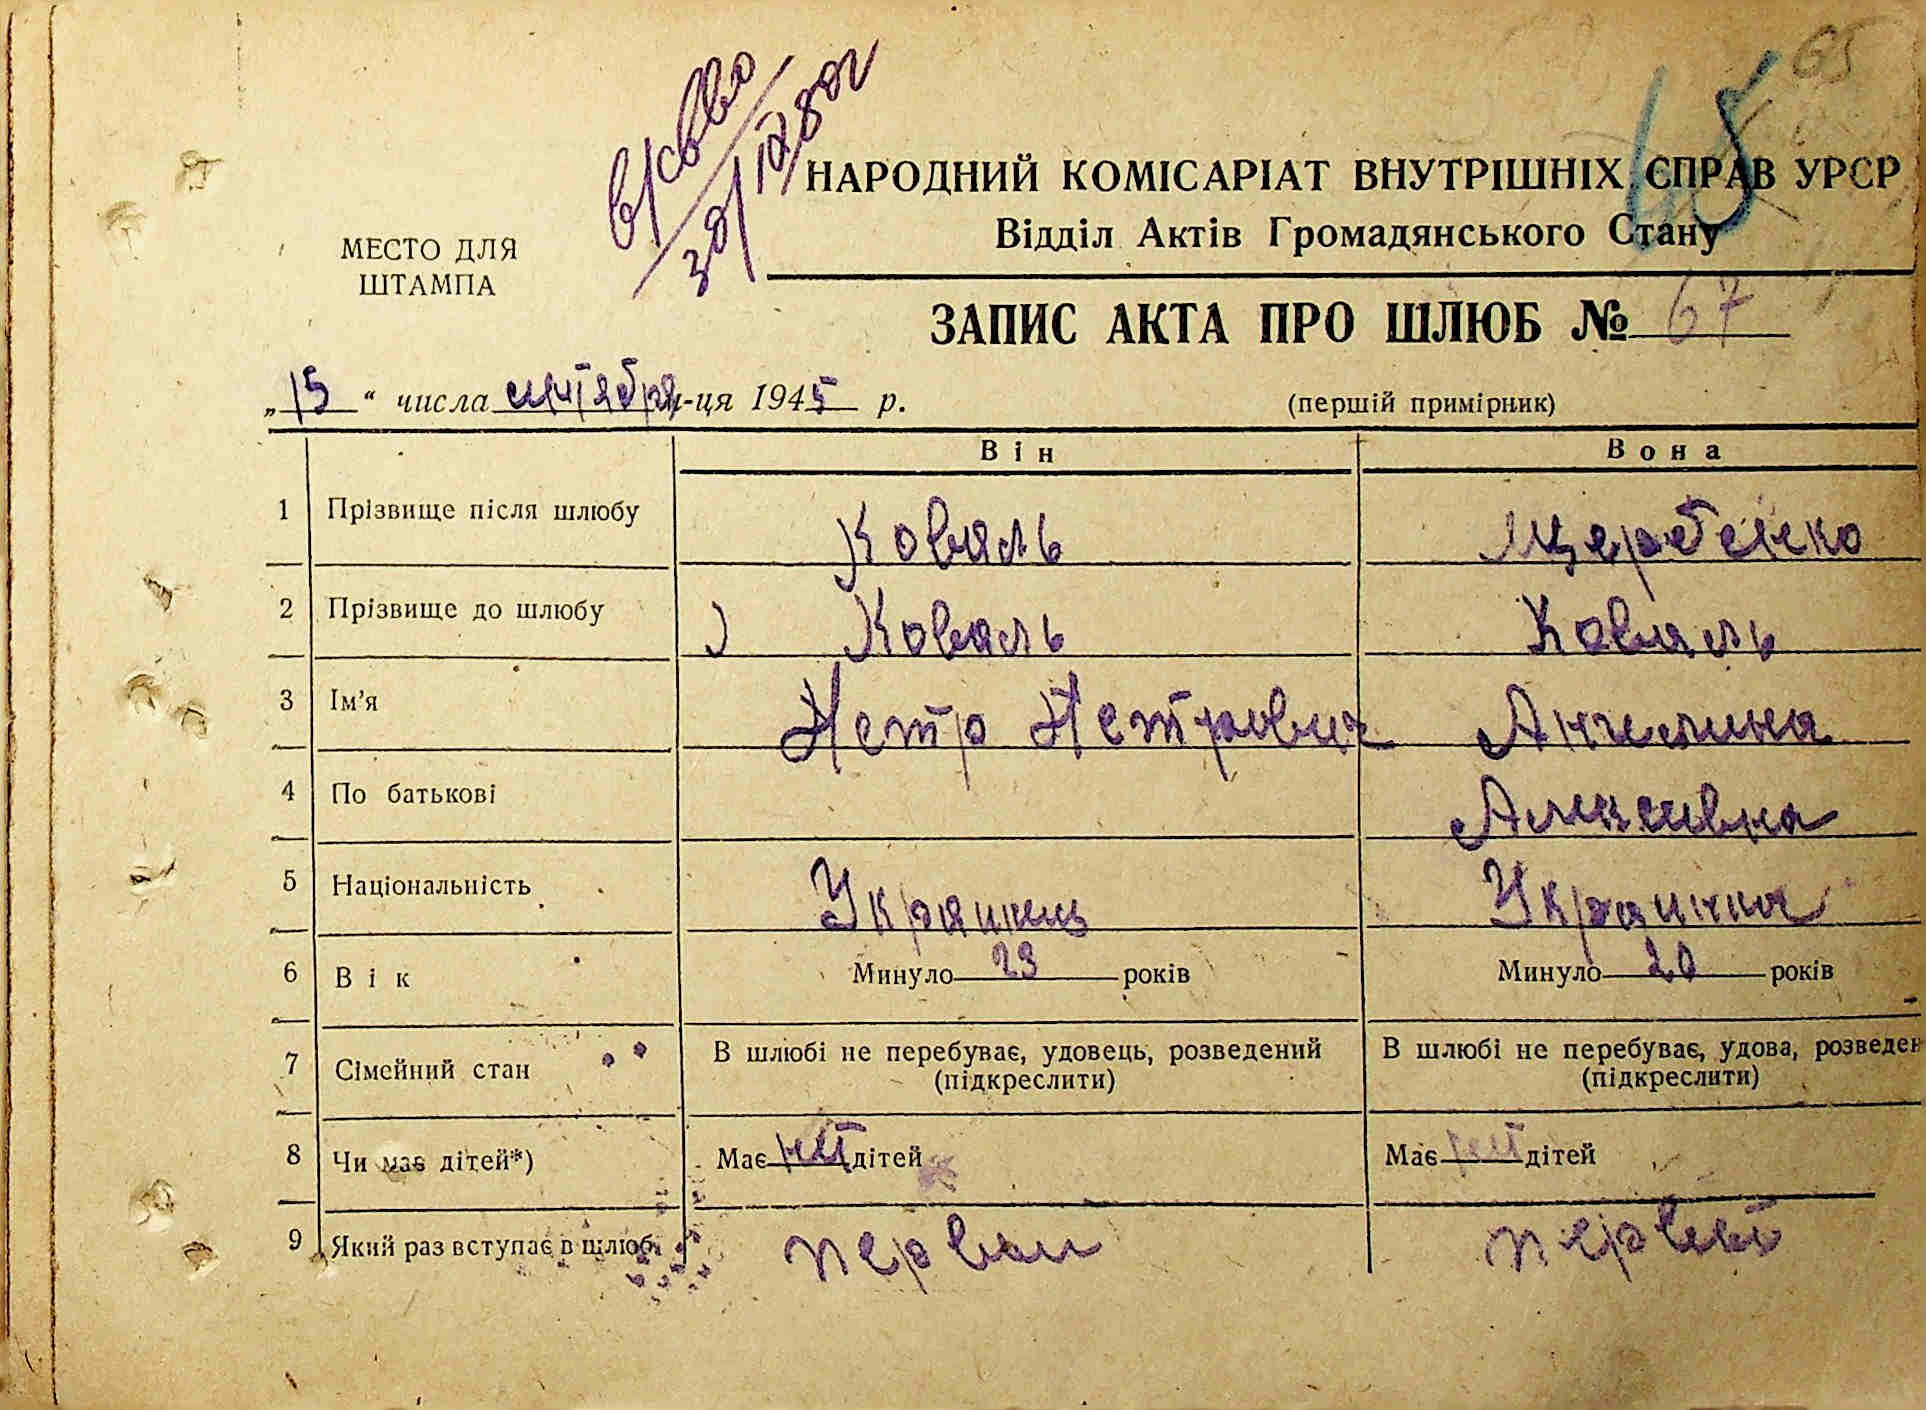 65
65
в/свво
30/IX 80г
НАРОДНИЙ КОМІСАРІАТ ВНУТРІШНІХ СПРАВ УРСР
Відділ Актів Громадянського Стану
МЕСТО ДЛЯ
ШТАМПА
ЗАПИС АКТА ПРО ШЛЮБ № 67
„15“ числа сентября м-ця 1945 р.
(першій примірник)
Він Вона
1 Прізвище після шлюбу Коваль Щербенко
2 Прізвище до шлюбу Коваль Коваль
3 Ім'я Петр Петрович Ангелина
4 По батькові Алексивна
5 Національність Украинец Украинка
6 Вік Минуло 23 років Минуло 20 років
7 Сімейний стан В шлюбі не перебуває, удовець, розведений (підкреслити) В шлюбі не перебуває, удова, розведен (підкреслити)
8 Чи має дітей*) Має нет дітей Має нет дітей
9 Який раз вступає в шлюб первый первый